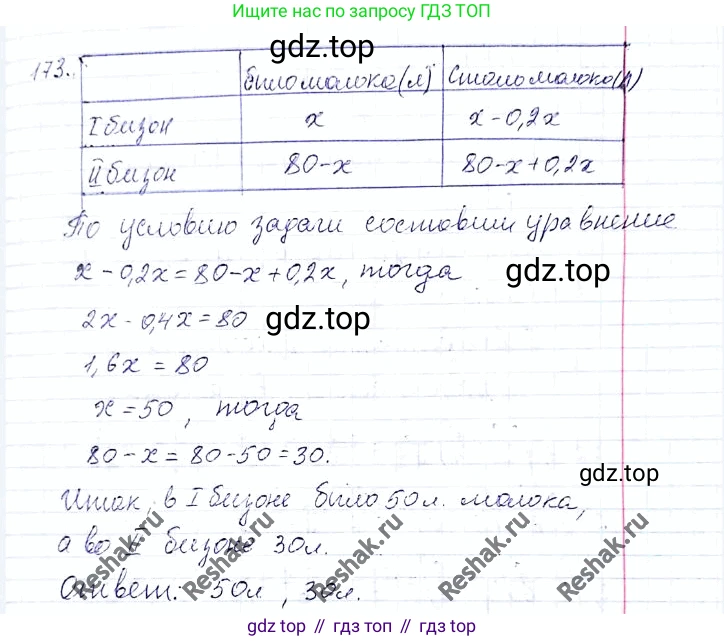 Ищите по запросу ГДЗ ТОП
173.
gdz.top
было молока(л) Стало молока(л)
I бизон x x-0,2x
II бизон 80-x 80-x+0,2x
По условию задачи составим уравнение
x-0,2x=80-x+0,2x, тогда gdz.top
2x-0,4x=80 gdz.top
1,6x=80
x=50, тогда
80-x=80-50=30.
gdz.top
Итак, в I бизоне было 50л. молока,
а во II бизоне 30л.
Reshak.ru Reshak.ru Reshak.ru Reshak.ru
Ответ: 50л, 30л.
gdz top // гдз топ // gdz.top // гдз.топ